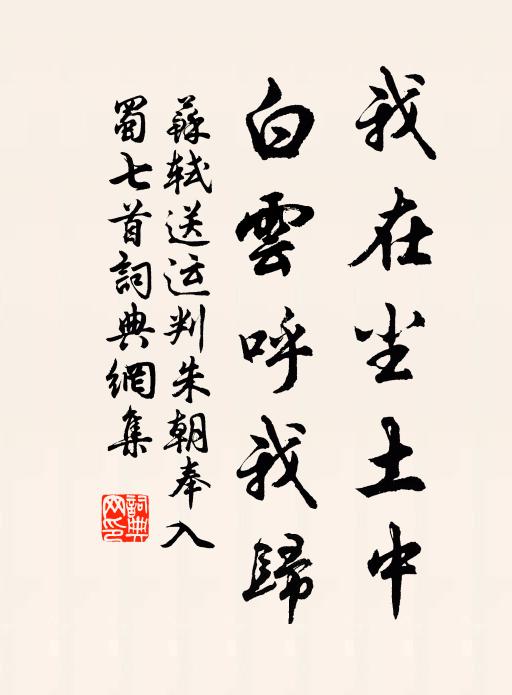 我在尘土中
白雲呼我歸
蘇軾送运判朱朝奉入
蜀七首詞典網集
詞典网印